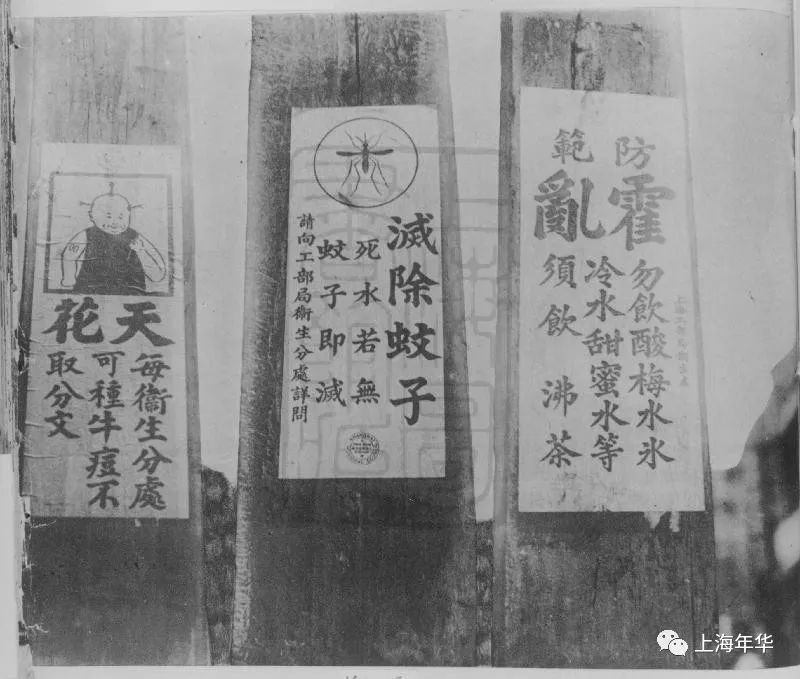 天花
每衞生分處
可種牛痘不
取分文
滅除蚊子
死水若無
蚊子即滅
請向工部局衞生分處詳問
防範
霍亂
勿飲酸梅水氷
冷水甜蜜水等
須飲沸茶
上海年华